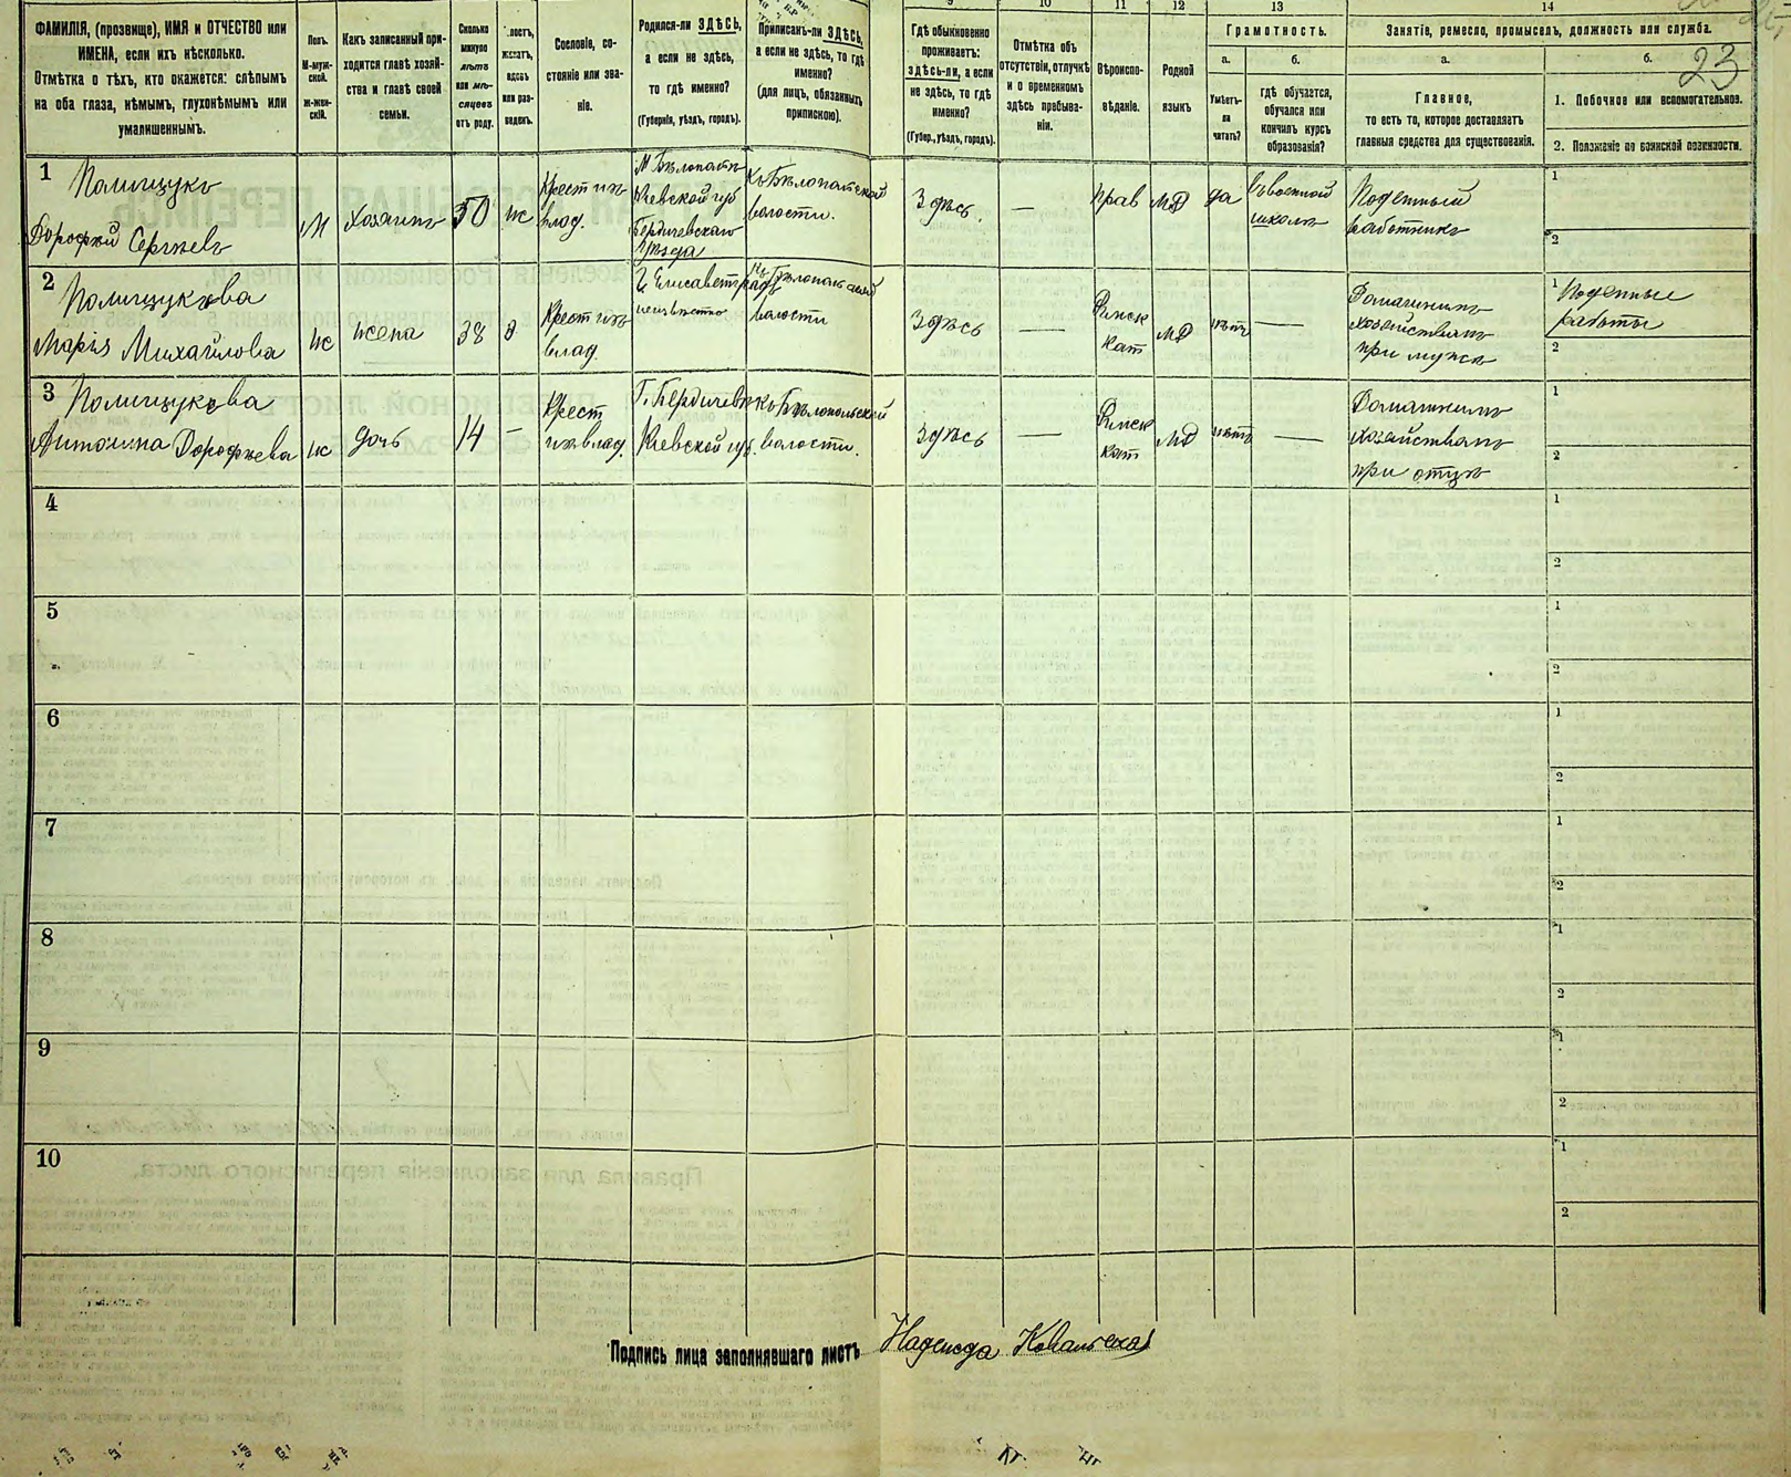 9 10 11 12 13 14
23
ФАМИЛІЯ, (прозвище), ИМЯ и ОТЧЕСТВО или
ИМЕНА, если ихъ нѣсколько.
Отмѣтка о тѣхъ, кто окажется: слѣпымъ
на оба глаза, нѣмымъ, глухонѣмымъ или
умалишеннымъ.
Полъ.
М-муж-
ской.
Ж-жен-
скій.
Какъ записанный при-
ходится главѣ хозяй-
ства и главѣ своей
семьи.
Сколько
минуло
лѣтъ
или мѣ-
сяцевъ
отъ роду.
женатъ,
вдовъ
или раз-
веденъ.
Сословіе, со-
стояніе или зва-
ніе.
Родился-ли ЗДѢСЬ,
а если не здѣсь,
то гдѣ именно?
(Губернія, уѣздъ, городъ).
Приписанъ-ли ЗДѢСЬ,
а если не здѣсь, то гдѣ
именно?
(для лицъ, обязанныхъ
припискою).
Гдѣ обыкновенно
проживаетъ:
здѣсь-ли, а если
не здѣсь, то гдѣ
именно?
(Губер., уѣздъ, городъ).
Отмѣтка объ
отсутствіи, отлучкѣ
и о временномъ
здѣсь пребыва-
ніи.
Вѣроиспо-
вѣданіе.
Родной
языкъ
Грамотность.
а.
Умѣетъ-
ли
читать?
б.
гдѣ обучается,
обучался или
кончилъ курсъ
образованія?
Занятіе, ремесло, промыселъ, должность или служба.
а.
Главное,
то есть то, которое доставляетъ
главныя средства для существованія.
б.
1. Побочное или вспомогательное.
2. Положеніе по воинской повинности.
1
Полищукъ
Дорофей Сергѣевъ
М
Хозяинъ
50
ж
Крест изъ
влад.
М Бѣлополь
Кіевской губ
Бердичевскаго
Уѣзда
Къ Бѣлопольской
волости.
Здѣсь.
—
прав
МР
да
въ военной
школѣ
Поденный
работникъ
1
2
2
Полищукова
Марія Михайлова
ж
жена
38
з
Крест изъ
влад.
Г. Елисаветградъ
неизвѣстно
Къ Бѣлопольской
волости
Здѣсь
—
Римск
кат
МР
нѣтъ
—
Домашнимъ
хозяйствомъ
при мужѣ
1
Поденные
работы
2
3
Полищукова
Антонина Дорофѣева
ж
дочь
14
—
Крест
изъ влад.
Г. Бердичевъ
Кіевской губ.
къ Бѣлопольской
волости.
Здѣсь
—
Римск
кат
МР
нѣтъ
—
Домашнимъ
хозяйствомъ
при отцѣ
1
2
4
1
2
5
1
2
6
1
2
7
1
2
8
1
2
9
1
2
10
1
2
Подпись лица заполнявшаго листъ Надежда Ковальская